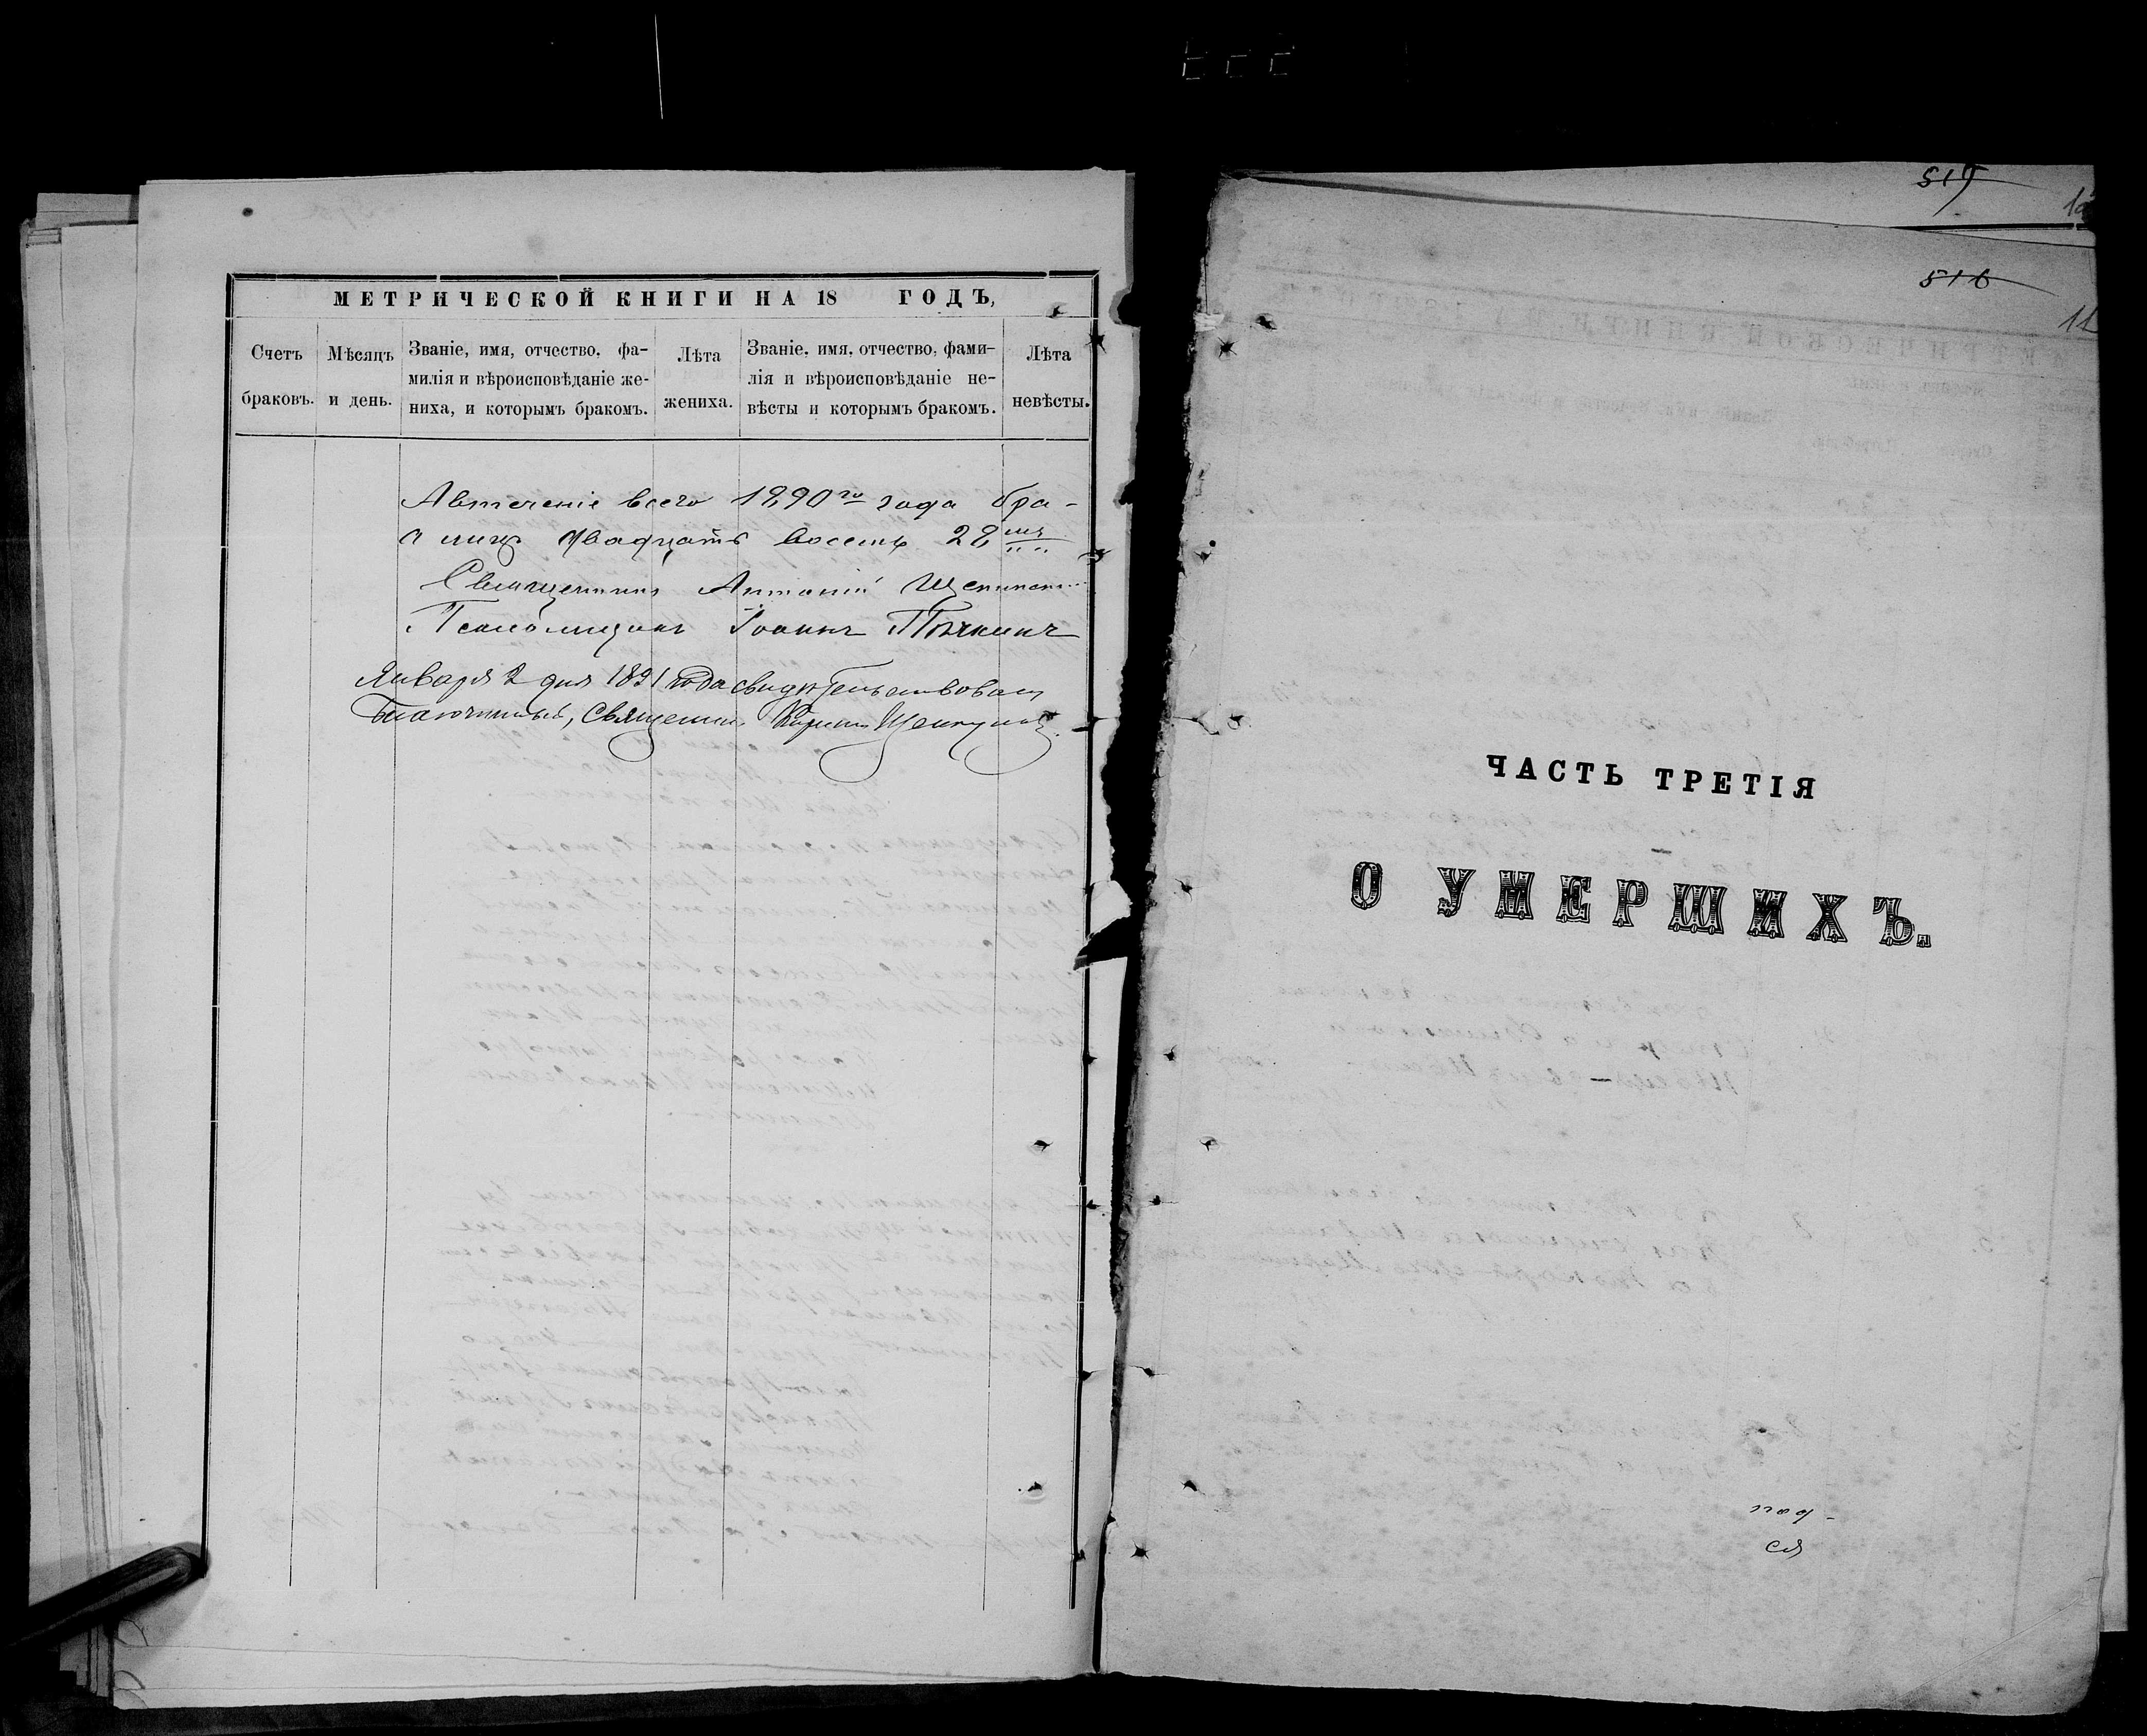 МЕТРИЧЕСКОЙ КНИГИ НА 18 ГОДЪ,
Счетъ браковъ.
Мѣсяцъ и день.
Званіе, имя, отчество, фа-
милія и вѣроисповѣданіе же-
ниха, и которымъ бракомъ.
Лѣта жениха.
Званіе, имя, отчество, фами-
лія и вѣроисповѣданіе не-
вѣсты и которымъ бракомъ.
Лѣта невѣсты.
Автеченіе всего 1890го года бра-
двадцать восемь 28
Священникъ Антоній
Псаломщикъ Іоаннъ
Января 2 дня 1891 года свидѣтельствовалъ
Благочинный, Священникъ
519
516
11
ЧАСТЬ ТРЕТІЯ
О УМЕРШИХЪ.